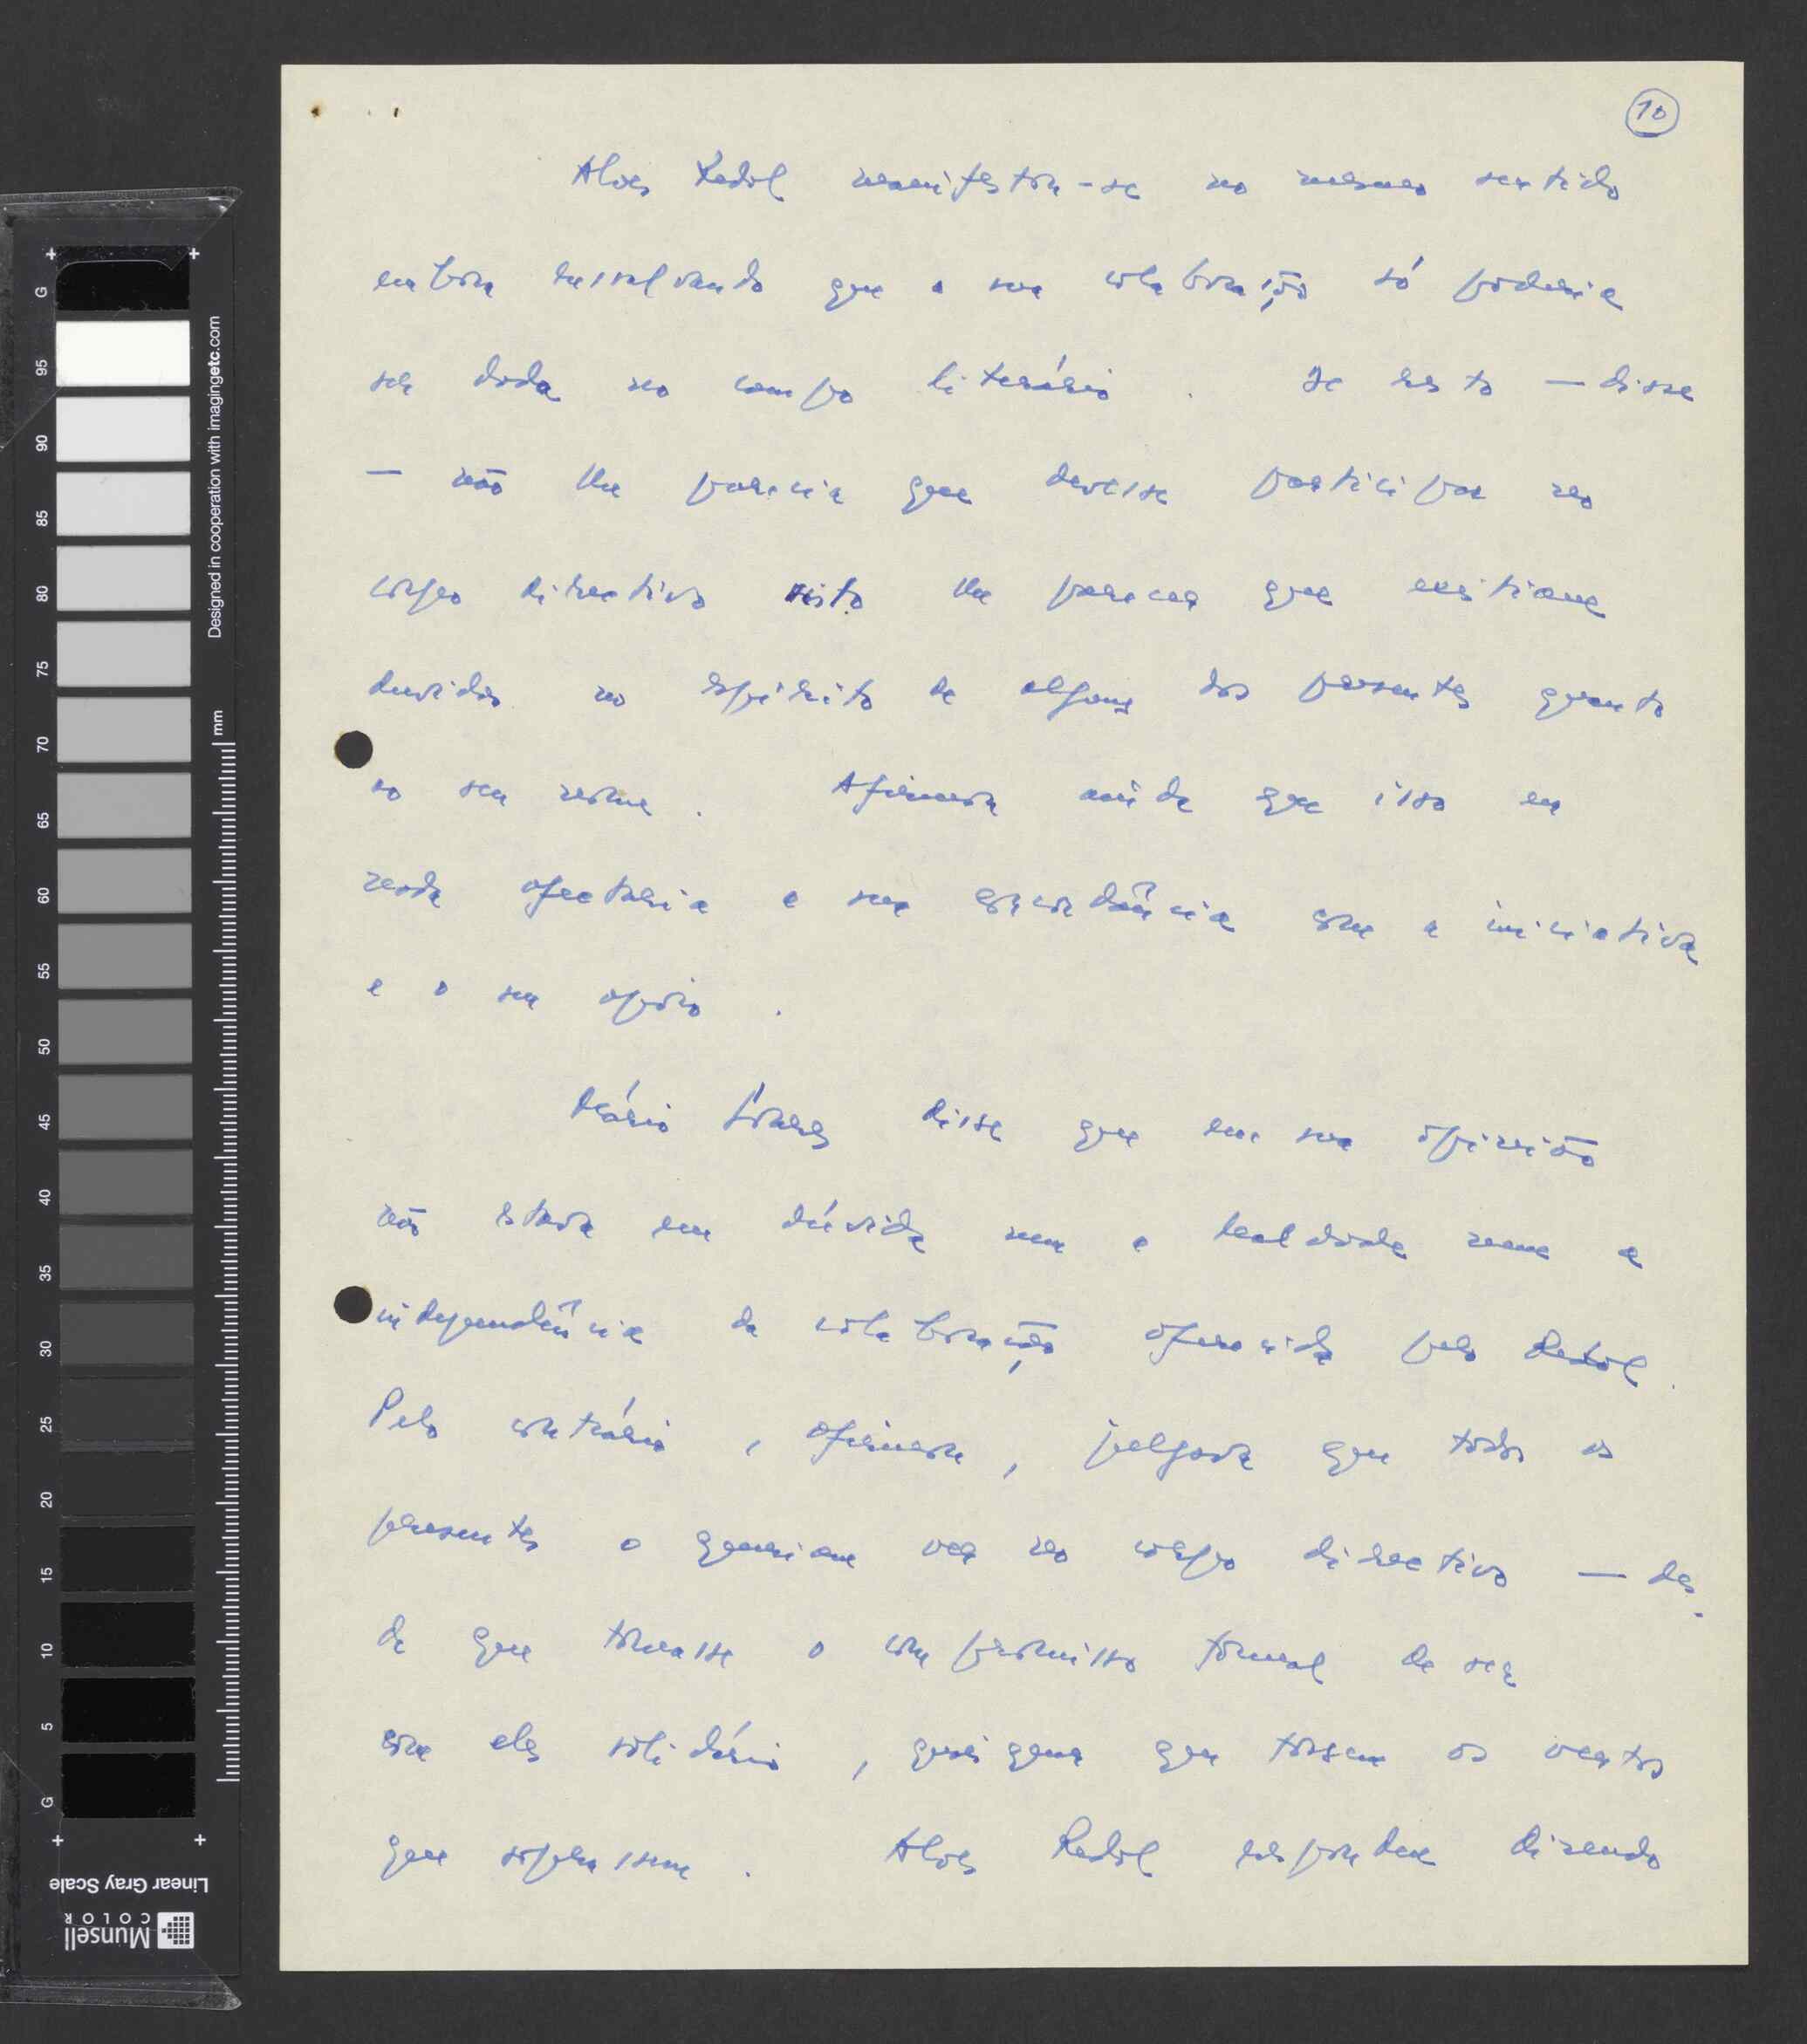 10
Alves Redol manifestou-se no mesmo sentido
embora ressalvando que a sua colaboração só poderia
ser dada no campo literário. De resto — disse
— não lhe parecia que devesse participar no
corpo directivo visto lhe parecer que existiam
duvidas no espírito de alguns dos presentes quanto
ao seu nome. Afirmou ainda que isso em
nada afectaria a sua concordância com a iniciativa
e o seu apoio.
Mário Soares disse que em sua opinião
não estava em dúvida nem a lealdade nem a
independência da colaboração oferecida pelo Redol.
Pelo contrário, afirmou, julgava que todos os
presentes o queriam ver no corpo directivo — des-
de que tomasse o compromisso formal de ser
com eles solidário, quaisquer que fossem os ventos
que soprassem. Alves Redol respondeu dizendo
G
95
90
85
80
75
70
65
60
55
50
45
40
35
30
25
20
15
10
5
G
Designed in cooperation with imagingetc.com
mm
Linear Gray Scale
Munsell
COLOR